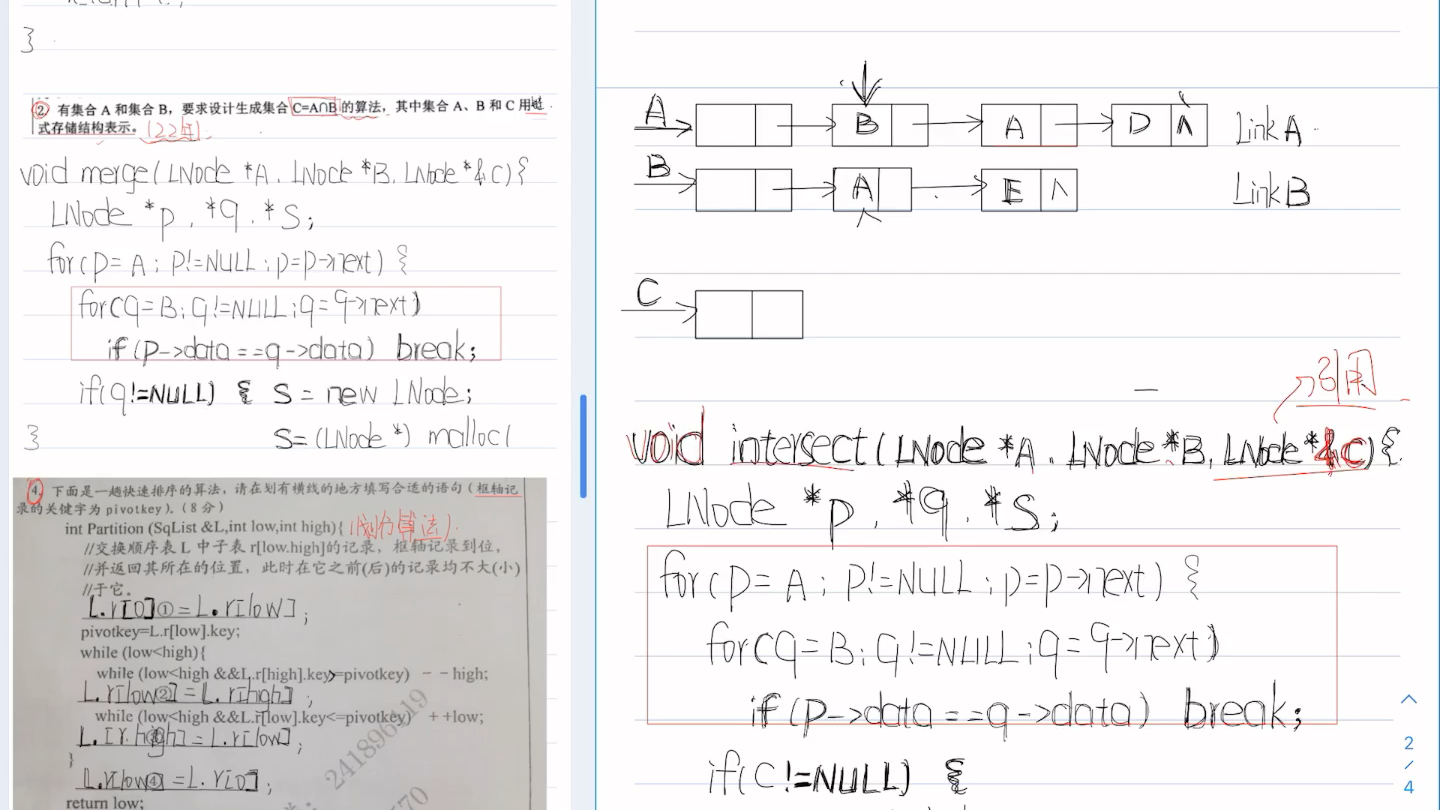 }
② 有集合 A 和集合 B，要求设计生成集合 C=A∩B 的算法，其中集合 A、B 和 C 用链
式存储结构表示。(22年)
void merge(LNode *A, LNode *B, LNode *&C){
LNode *p, *q, *s;
for(p=A; p!=NULL; p=p->next) {
for(q=B; q!=NULL; q=q->next)
if(p->data==q->data) break;
if(q!=NULL) { s = new LNode;
} s=(LNode*) malloc(
4. 下面是一趟快速排序的算法，请在划有横线的地方填写合适的语句（枢轴记
录的关键字为 pivotkey）。（8 分）
int Partition (SqList &L,int low,int high){ (划分算法).
//交换顺序表 L 中子表 r[low.high]的记录，枢轴记录到位，
//并返回其所在的位置，此时在它之前(后)的记录均不大(小)
//于它。
L.r[0]①=L.r[low];
pivotkey=L.r[low].key;
while (low<high){
while (low<high &&L.r[high].key>=pivotkey) --high;
L.r[low②]=L.r[high];
while (low<high &&L.r[low].key<=pivotkey) ++low;
L.[r.high]=L.r[low];
}
L.r[low④]=L.r[0];
return low;
241896119
570
A B A D ∧ Link A
B A E ∧ Link B
C
引用
void intersect(LNode *A, LNode *B, LNode *&C){
LNode *p, *q, *s;
for(p=A; p!=NULL; p=p->next) {
for(q=B; q!=NULL; q=q->next)
if(p->data==q->data) break;
if(C!=NULL) {
2
/
4